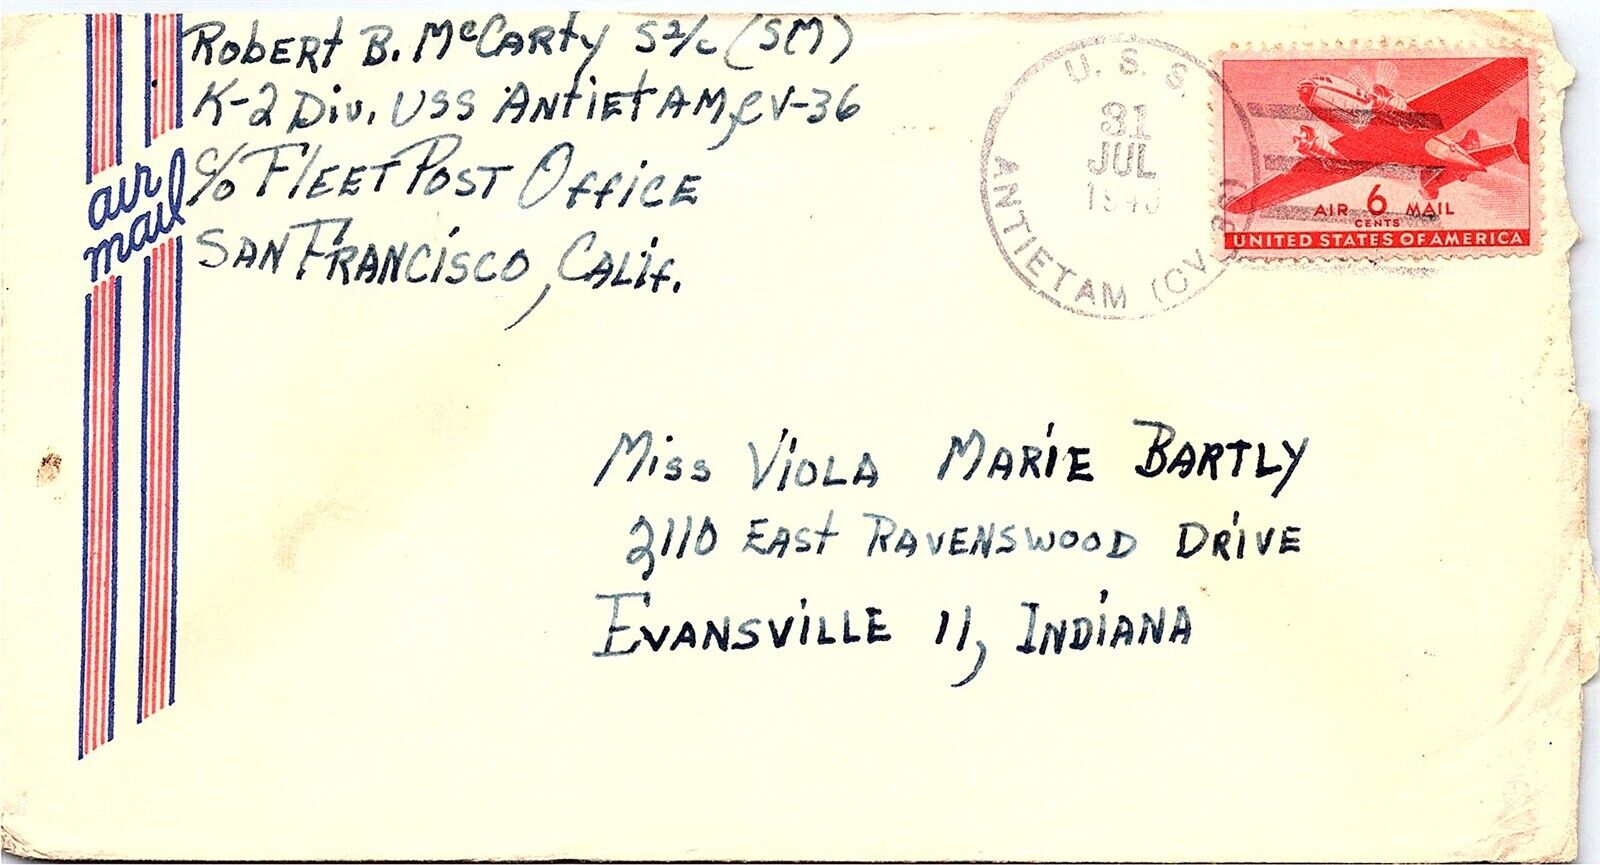 Robert B. McCarty S2/c (SM)
K-2 Div. USS Antietam, CV-36
c/o Fleet Post Office
San Francisco, Calif.
air
mail
U.S.S.
31
JUL
ANTIETAM (CV 36)
AIR 6 MAIL
CENTS
UNITED STATES OF AMERICA
Miss Viola Marie Bartly
2110 East Ravenswood Drive
Evansville 11, Indiana